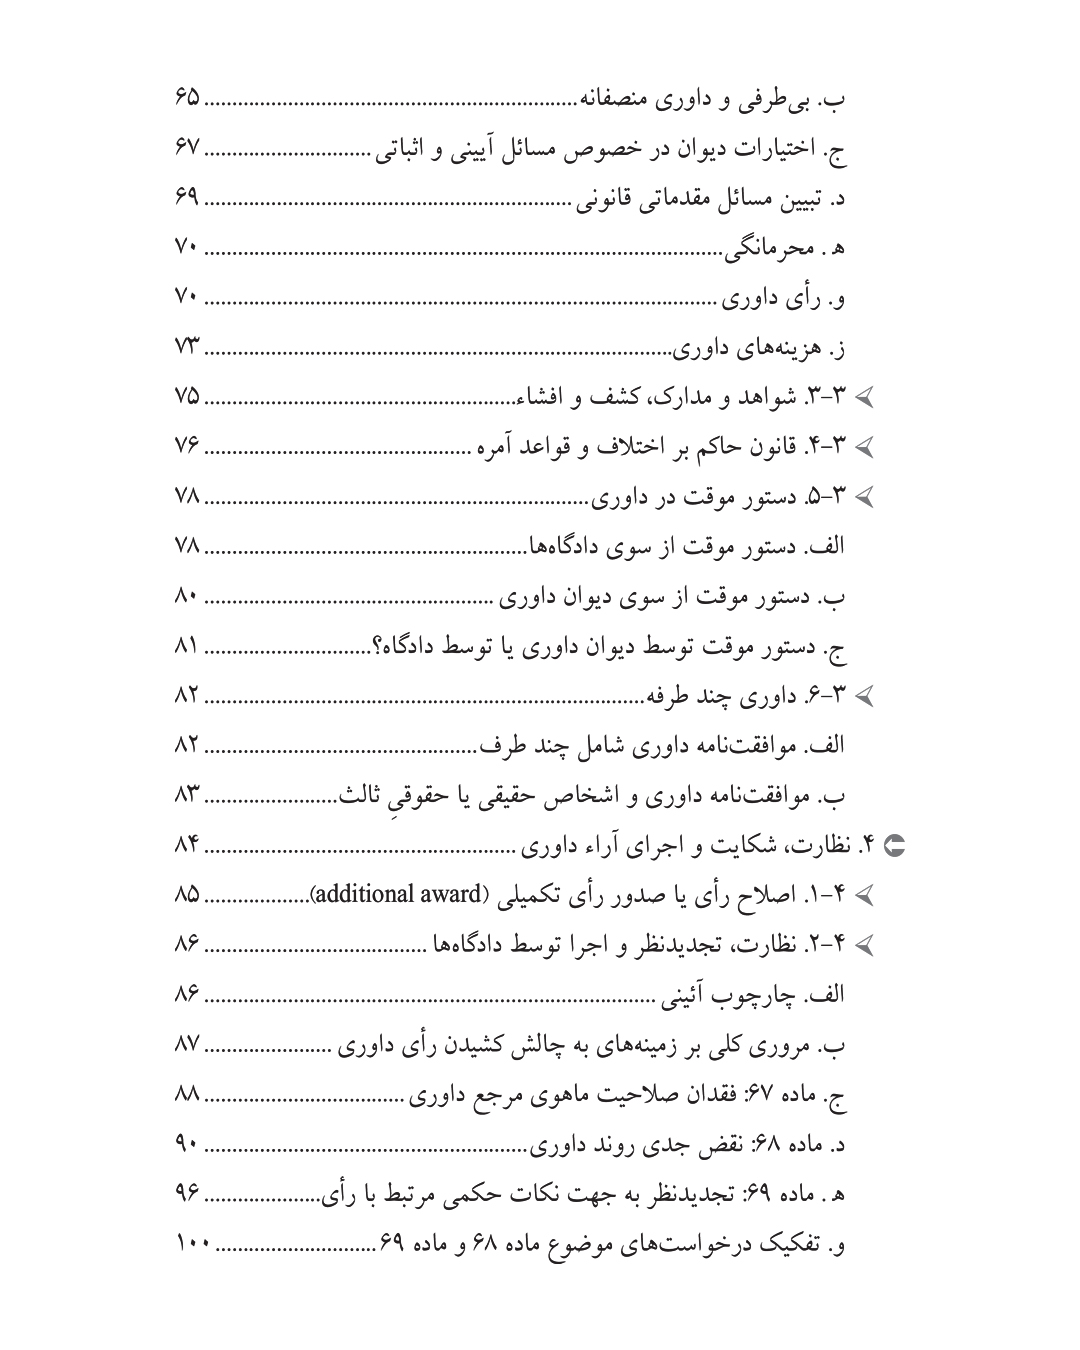 ب. بی‌طرفی و داوری منصفانه.................................................................. ۶۵
ج. اختیارات دیوان در خصوص مسائل آیینی و اثباتی.............................. ۶۷
د. تبیین مسائل مقدماتی قانونی.................................................................. ۶۹
ه‍ . محرمانگی............................................................................................. ۷۰
و. رأی داوری............................................................................................ ۷۰
ز. هزینه‌های داوری.................................................................................... ۷۳
۳-۳. شواهد و مدارک، کشف و افشاء........................................................ ۷۵
۳-۴. قانون حاکم بر اختلاف و قواعد آمره................................................ ۷۶
۳-۵. دستور موقت در داوری..................................................................... ۷۸
الف. دستور موقت از سوی دادگاه‌ها.......................................................... ۷۸
ب. دستور موقت از سوی دیوان داوری.................................................... ۸۰
ج. دستور موقت توسط دیوان داوری یا توسط دادگاه؟.............................. ۸۱
۳-۶. داوری چند طرفه............................................................................... ۸۲
الف. موافقت‌نامه داوری شامل چند طرف................................................. ۸۲
ب. موافقت‌نامه داوری و اشخاص حقیقی یا حقوقیِ ثالث........................ ۸۳
۴. نظارت، شکایت و اجرای آراء داوری........................................................ ۸۴
۴-۱. اصلاح رأی یا صدور رأی تکمیلی (additional award)................... ۸۵
۴-۲. نظارت، تجدیدنظر و اجرا توسط دادگاه‌ها........................................ ۸۶
الف. چارچوب آئینی................................................................................. ۸۶
ب. مروری کلی بر زمینه‌های به چالش کشیدن رأی داوری....................... ۸۷
ج. ماده ۶۷: فقدان صلاحیت ماهوی مرجع داوری.................................... ۸۸
د. ماده ۶۸: نقض جدی روند داوری.......................................................... ۹۰
ه‍ . ماده ۶۹: تجدیدنظر به جهت نکات حکمی مرتبط با رأی..................... ۹۶
و. تفکیک درخواست‌های موضوع ماده ۶۸ و ماده ۶۹............................. ۱۰۰